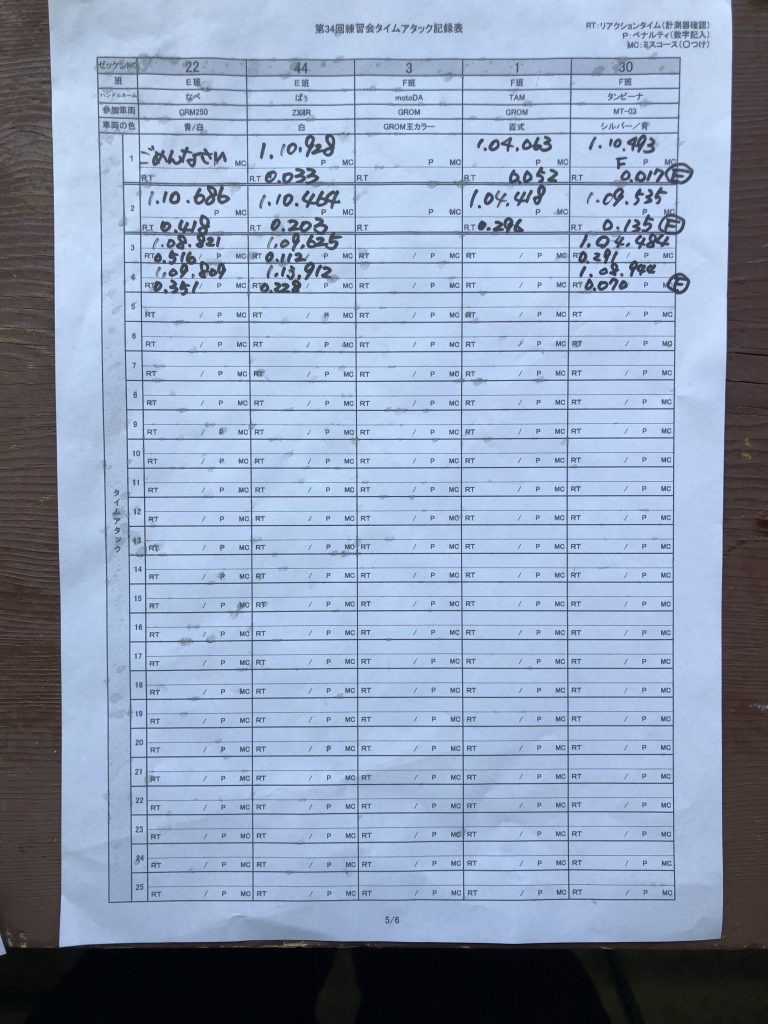 第34回練習会タイムアタック記録表
RT:リアクションタイム(計測器確認)
P:ペナルティ(数字記入)
MC:ミスコース(〇つけ)
ゼッケンNO 22 44 3 1 30
班 E班 E班 F班 F班 F班
ハンドルネーム なべ ぱぅ motoDA TAM タンビーナ
参加車両 CRM250 GROM GROM MT-03
車両の色 青/白 白 GROM王カラー 百式 シルバー/青
タイムアタック
1 ごめんなさい MC 1.10.928 P MC P MC 1.04.063 P MC 1.10.493 F P
RT RT 0.033 RT RT 0.052 RT 0.017 Ⓕ
2 1.10.686 P MC 1.10.464 P MC P MC 1.04.418 P MC 1.09.535 P
RT 0.418 RT 0.203 RT RT 0.296 RT 0.135 Ⓕ
3 1.08.821 1.09.625 1.04.484
RT 0.516 P MC RT 0.112 P MC RT / P MC RT / P MC RT 0.291 P MC
4 1.09.809 1.13.912 1.08.944
RT 0.351 P MC RT 0.228 P MC RT / P MC RT / P MC RT 0.070 P Ⓕ
5 RT / P MC RT / P MC RT / P MC RT / P MC RT / P MC
6 RT / P MC RT / P MC RT / P MC RT / P MC RT / P MC
7 RT / P MC RT / P MC RT / P MC RT / P MC RT / P MC
8 RT / P MC RT / P MC RT / P MC RT / P MC RT / P MC
9 RT / P MC RT / P MC RT / P MC RT / P MC RT / P MC
10 RT / P MC RT / P MC RT / P MC RT / P MC RT / P MC
11 RT / P MC RT / P MC RT / P MC RT / P MC RT / P MC
12 RT / P MC RT / P MC RT / P MC RT / P MC RT / P MC
13 RT / P MC RT / P MC RT / P MC RT / P MC RT / P MC
14 RT / P MC RT / P MC RT / P MC RT / P MC RT / P MC
15 RT / P MC RT / P MC RT / P MC RT / P MC RT / P MC
16 RT / P MC RT / P MC RT / P MC RT / P MC RT / P MC
17 RT / P MC RT / P MC RT / P MC RT / P MC RT / P MC
18 RT / P MC RT / P MC RT / P MC RT / P MC RT / P MC
19 RT / P MC RT / P MC RT / P MC RT / P MC RT / P MC
20 RT / P MC RT / P MC RT / P MC RT / P MC RT / P MC
21 RT / P MC RT / P MC RT / P MC RT / P MC RT / P MC
22 RT / P MC RT / P MC RT / P MC RT / P MC RT / P MC
23 RT / P MC RT / P MC RT / P MC RT / P MC RT / P MC
24 RT / P MC RT / P MC RT / P MC RT / P MC RT / P MC
25 RT / P MC RT / P MC RT / P MC RT / P MC RT / P MC
5/6